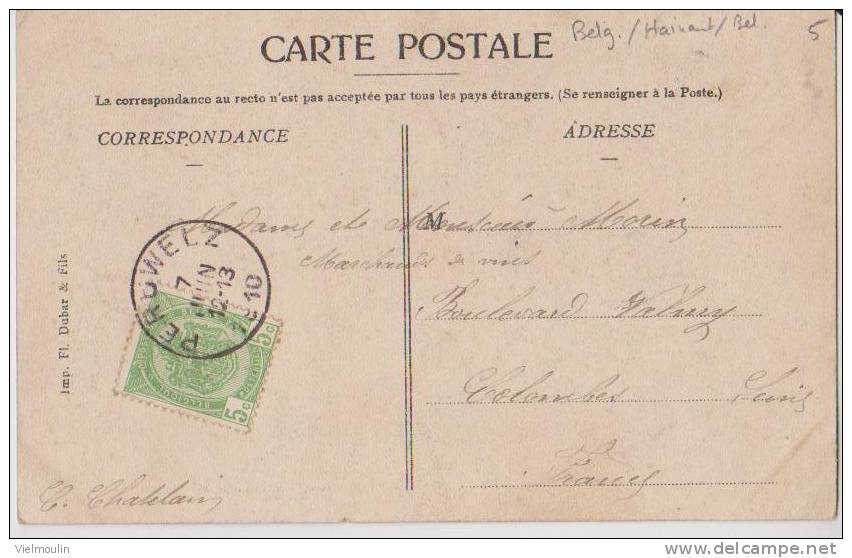 Belg. / Hainaut / Bel. 5
CARTE POSTALE
La correspondance au recto n'est pas acceptée par tous les pays étrangers. (Se renseigner à la Poste.)
CORRESPONDANCE
ADRESSE
M
Madame et Monsieur Morin
Marchands de vins
Boulevard Valmy
Colombes Seine
France
PERUWELZ
7
JUIN
12-13
1910
5c 5c
BELGIQUE
Imp. Fl. Dubar & Fils
C. Chatelain
Vielmoulin
delcampe.net